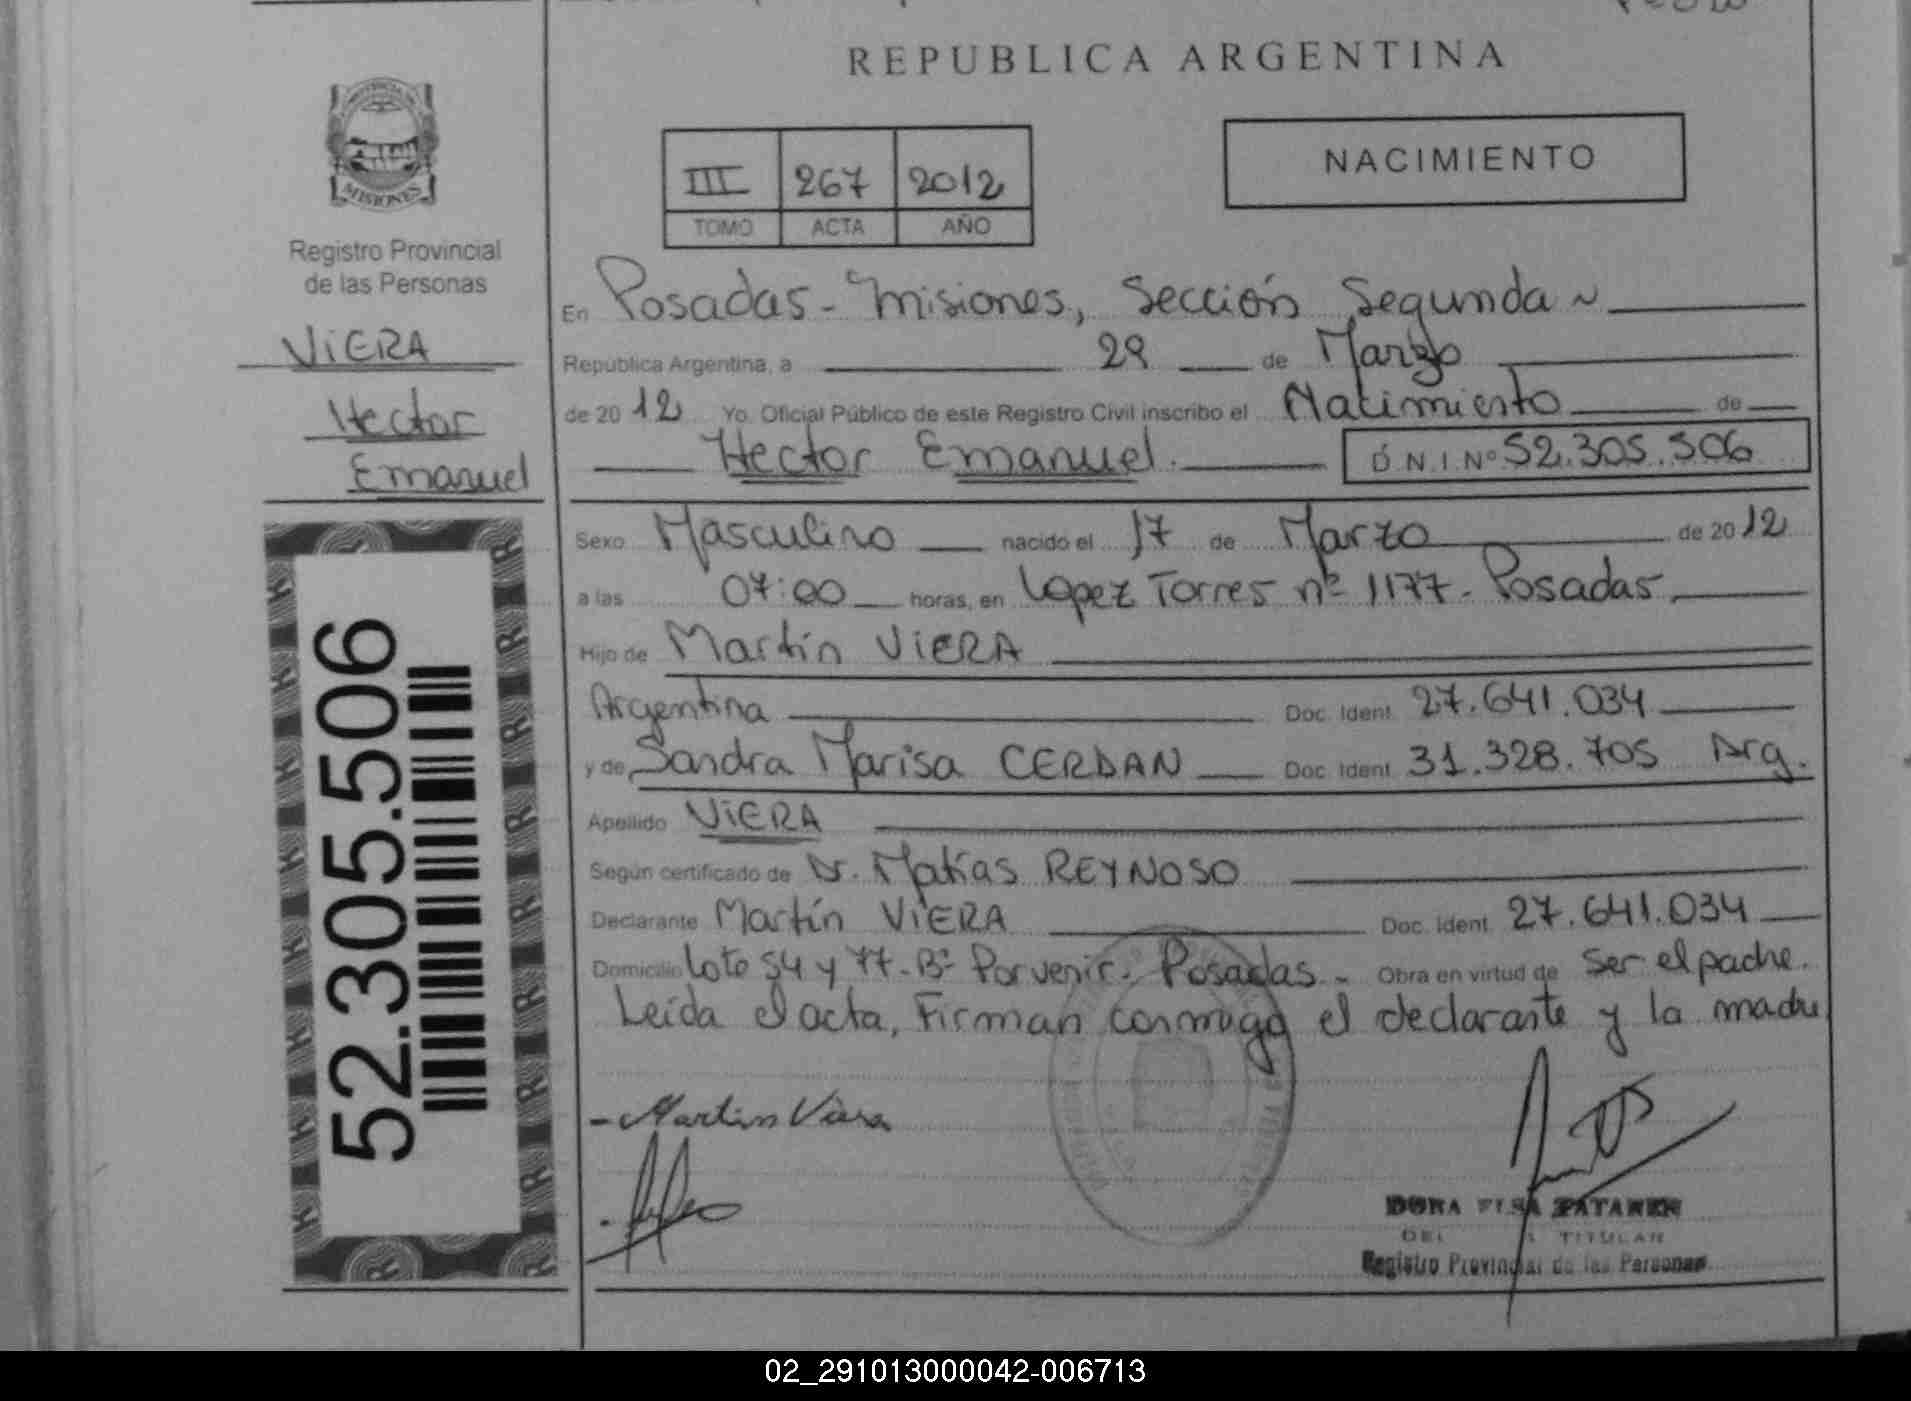 REPUBLICA ARGENTINA
MISIONES
Registro Provincial
de las Personas
VIERA
Hector
Emanuel
52.305.506
III 267 2012
TOMO ACTA AÑO
NACIMIENTO
En Posadas - Misiones, Sección Segunda ~
República Argentina, a 29 de Marzo
de 2012 Yo, Oficial Público de este Registro Civil inscribo el Nacimiento de
Hector Emanuel. D.N.I Nº 52.305.506
Sexo Masculino nacido el 17 de Marzo de 2012
a las 07:00 horas, en Lopez Torres nº 1177 - Posadas
Hijo de Martín VIERA
Argentina Doc. Ident. 27.641.034
y de Sandra Marisa CERDAN Doc. Ident. 31.328.705 Arg.
Apellido VIERA
Según certificado de Dr. Matías REYNOSO
Declarante Martín VIERA Doc. Ident. 27.641.034
Domicilio Lote 54 y 77 - Bº Porvenir - Posadas - Obra en virtud de ser el padre.
Leída el acta, Firman conmigo el declarante y la madre
- Martin Viera
DORA ELSA
TITULAR
Registro Provincial de las Personas
02_291013000042-006713